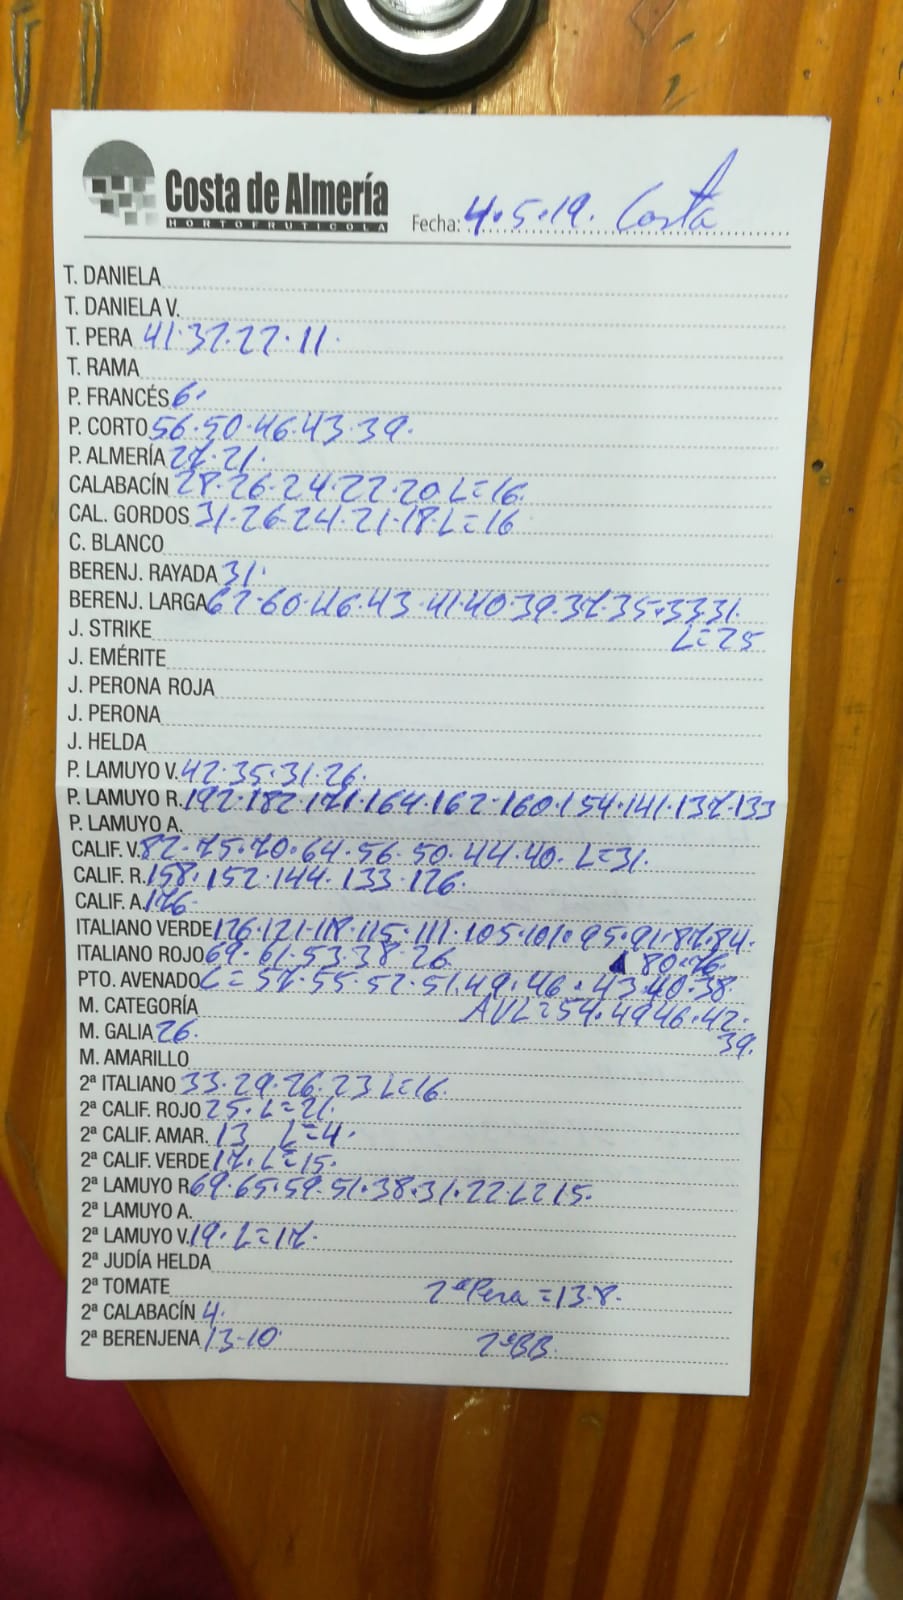 Costa de Almería
HORTOFRUTICOLA
Fecha: 4.5.19. Costa
T. DANIELA
T. DANIELA V.
T. PERA 41.37.27.11.
T. RAMA
P. FRANCÉS 6.
P. CORTO 56.50.46.43.39.
P. ALMERÍA 27.21.
CALABACÍN 28.26.24.22.20 L=16.
CAL. GORDOS 31.26.24.21.18.L=16
C. BLANCO
BERENJ. RAYADA 31.
BERENJ. LARGA 62.60.46.43.41.40.39.37.35.33.31.
J. STRIKE L=25
J. EMÉRITE
J. PERONA ROJA
J. PERONA
J. HELDA
P. LAMUYO V. 42.35.31.26.
P. LAMUYO R. 192.182.171.164.162.160.154.141.137.133
P. LAMUYO A.
CALIF. V. 82.75.70.64.56.50.44.40. L=31.
CALIF. R. 158.152.144.133.126.
CALIF. A. 176.
ITALIANO VERDE 126.121.118.115.111.105.101.95.91.87.84.
ITALIANO ROJO 69.61.53.38.26. 80.76.
PTO. AVENADO L=57.55.52.51.49.46.43.40.38
M. CATEGORÍA AVL=54.49 46.42.
M. GALIA 26. 39.
M. AMARILLO
2ª ITALIANO 33.29.26.23 L=16.
2ª CALIF. ROJO 25. L=21.
2ª CALIF. AMAR. 13 L=4.
2ª CALIF. VERDE 17. L=15.
2ª LAMUYO R 69.65.59.51.38.31.22.L=15.
2ª LAMUYO A.
2ª LAMUYO V. 19. L=17.
2ª JUDÍA HELDA
2ª TOMATE 2ª Pera = 13.8.
2ª CALABACÍN 4.
2ª BERENJENA 13.10 2ªBB.